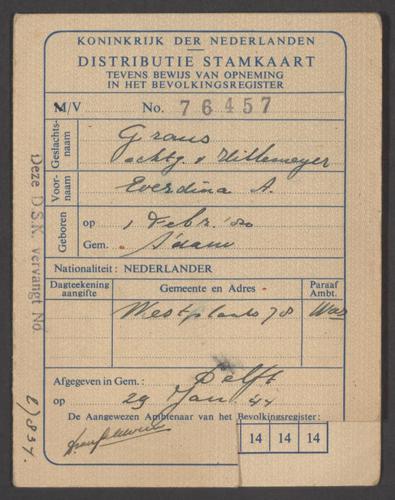 KONINKRIJK DER NEDERLANDEN
DISTRIBUTIE STAMKAART
TEVENS BEWIJS VAN OPNEMING
IN HET BEVOLKINGSREGISTER
M/V No. 76457
Geslachts-
naam
Graus
echtg. v Hillemeyer
Voor-
naam
Everdina A.
Geboren
op 1 Febr. '80
Gem. A'dam
Nationaliteit: NEDERLANDER
Dagteekening
aangifte
Gemeente en Adres
Paraaf
Ambt.
Westplants 78
Afgegeven in Gem.: Delft
op 29 Jan '44
De Aangewezen Ambtenaar van het Bevolkingsregister:
14 14 14
Deze D.S.K. vervangt No.